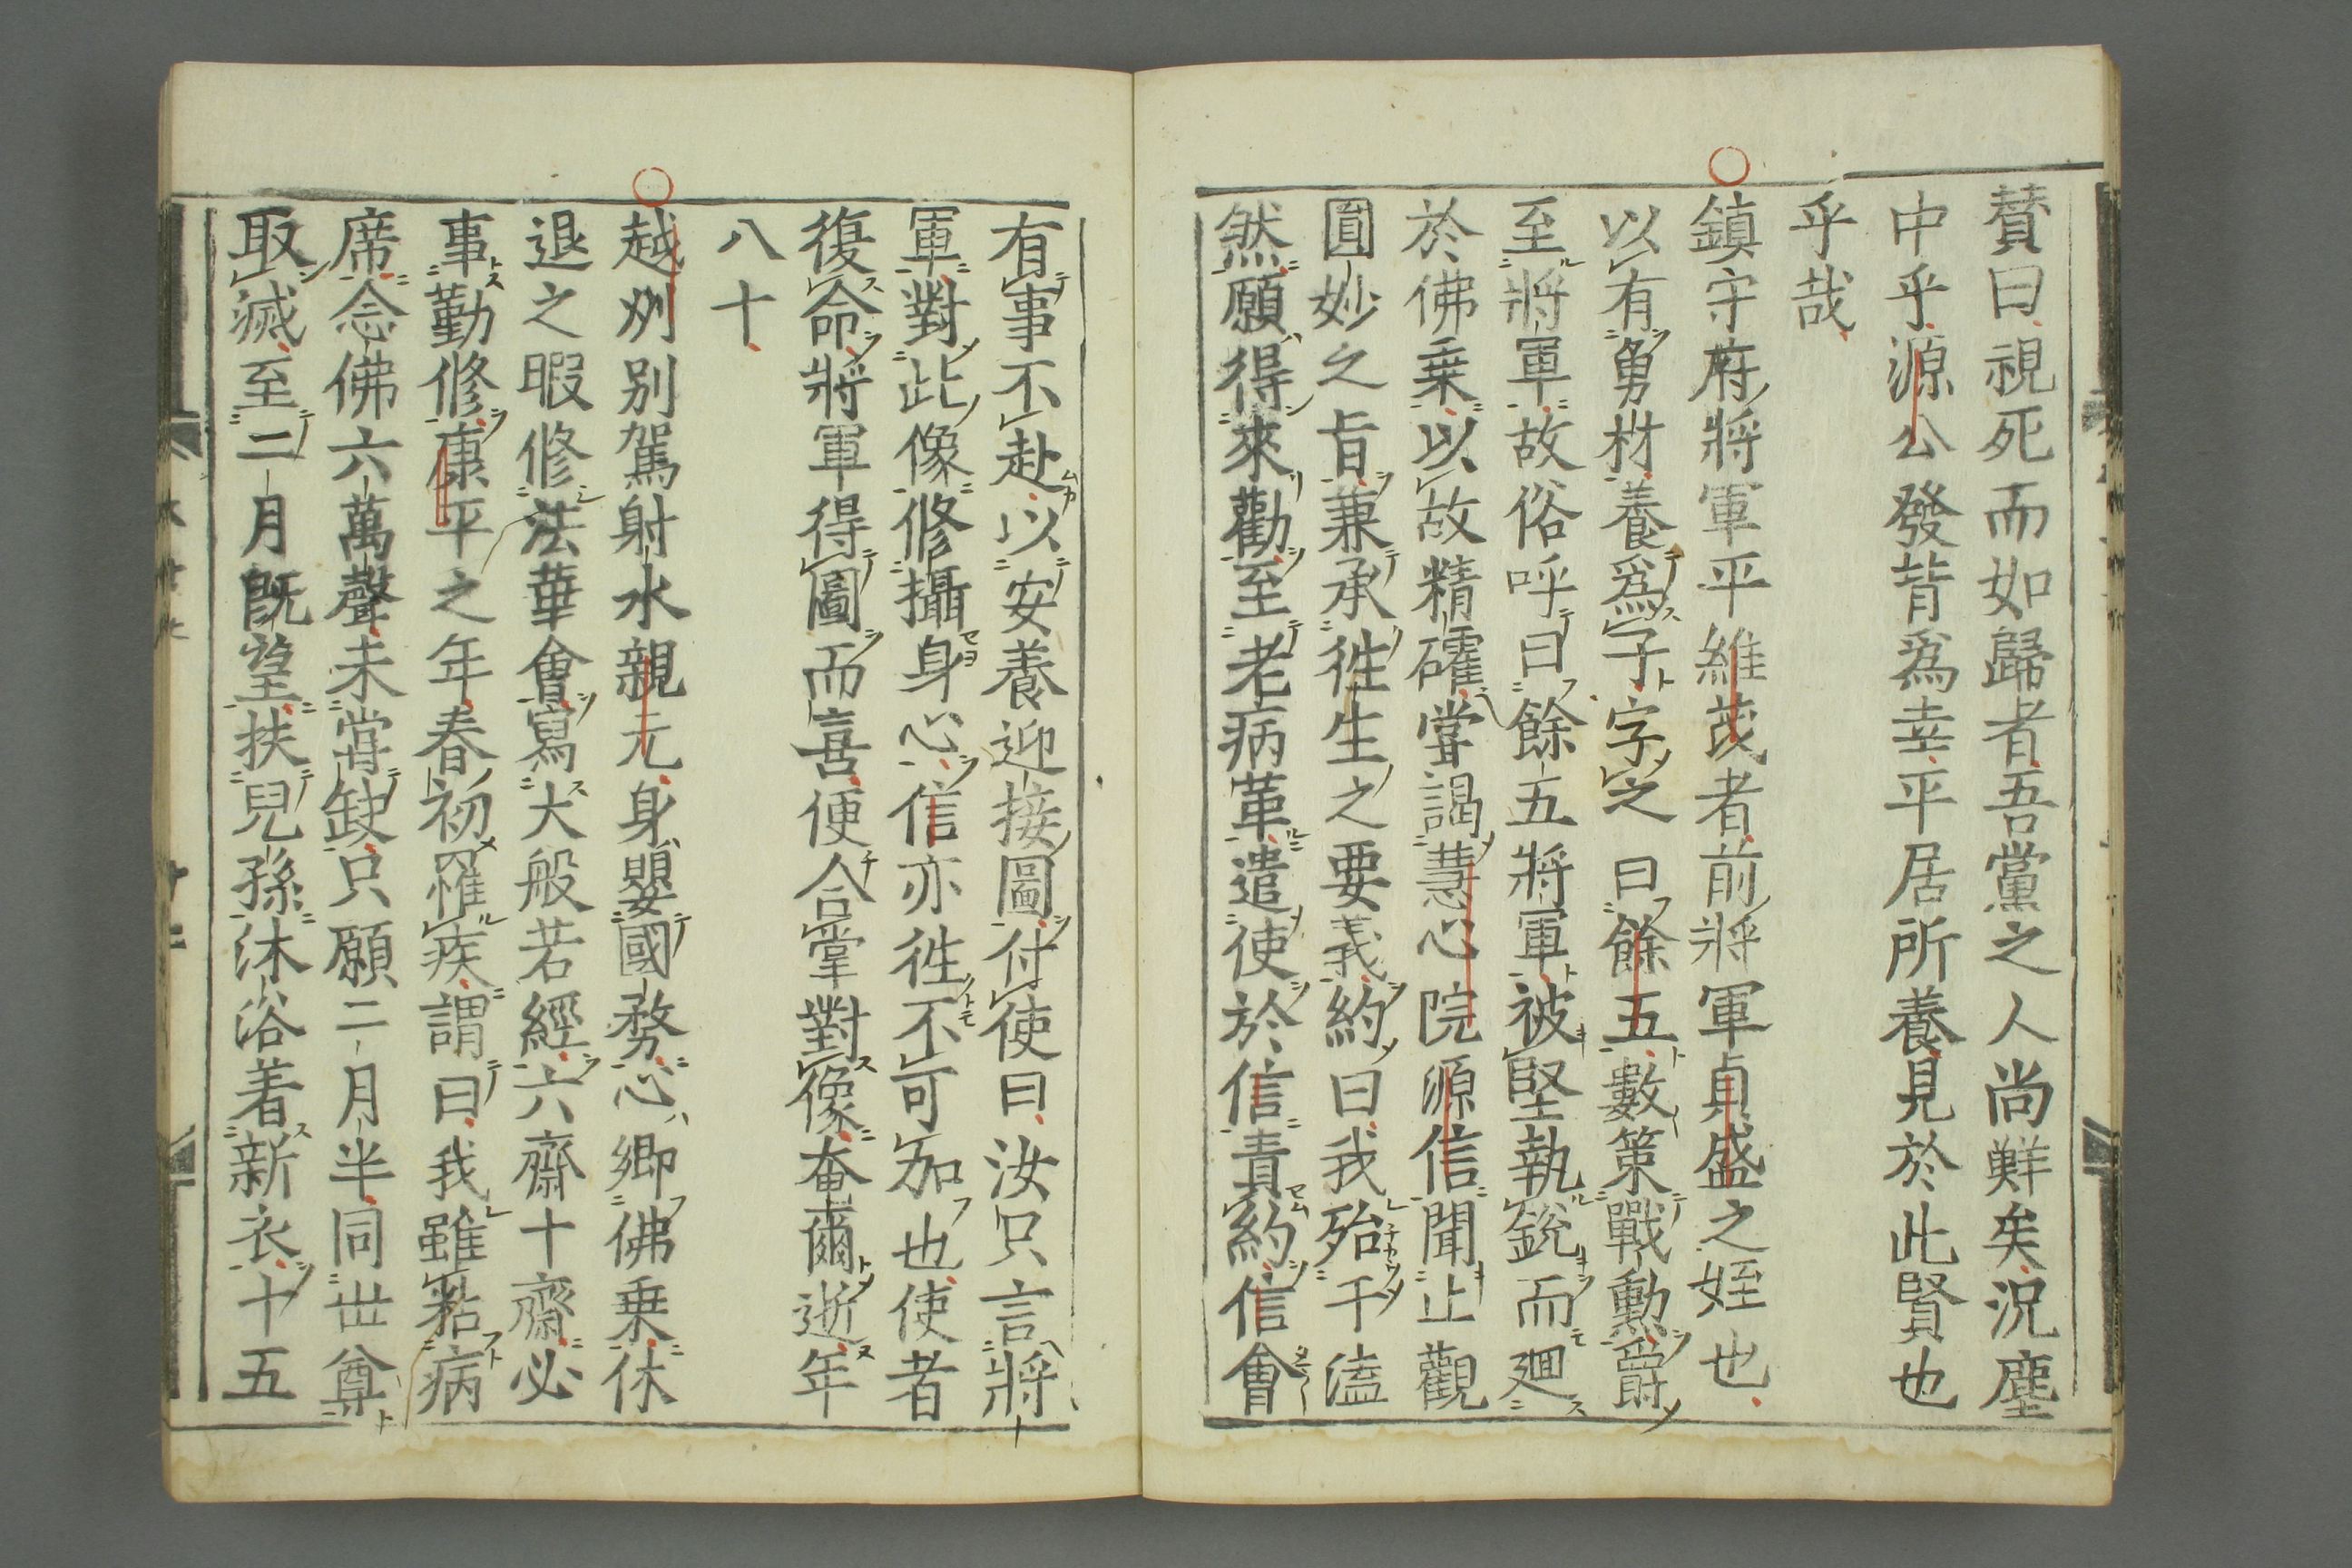 賛曰視死而如歸者吾黨之人尚鮮矣況塵
中乎源公發背爲幸平居所養見於此賢也
乎哉
鎮守府將軍平維茂者前將軍貞盛之姪也
以有勇材養爲子字之曰餘五數策戰勳爵
至將軍故俗呼曰餘五將軍被堅執銳而廻
於佛乗以故精確嘗謁慧心院源信聞止觀
圓妙之旨兼承徃生之要義約曰我殆千溘
然願得來勸至老病革遣使於信責約信會
有事不赴以安養迎接圖付使曰汝只言將
軍對此像修攝身心信亦徃不可加也使者
復命將軍得圖而喜便合掌對像奄爾逝年
八十
越州別駕射水親元身嬰國務心鄉佛乗休
退之暇修法華會寫大般若經六齋十齋必
事勤修康平之年春初罹疾謂曰我雖黏病
席念佛六萬聲未嘗缺只願二月半同世尊
取滅至二月旣望扶兒孫沐浴着新衣十五